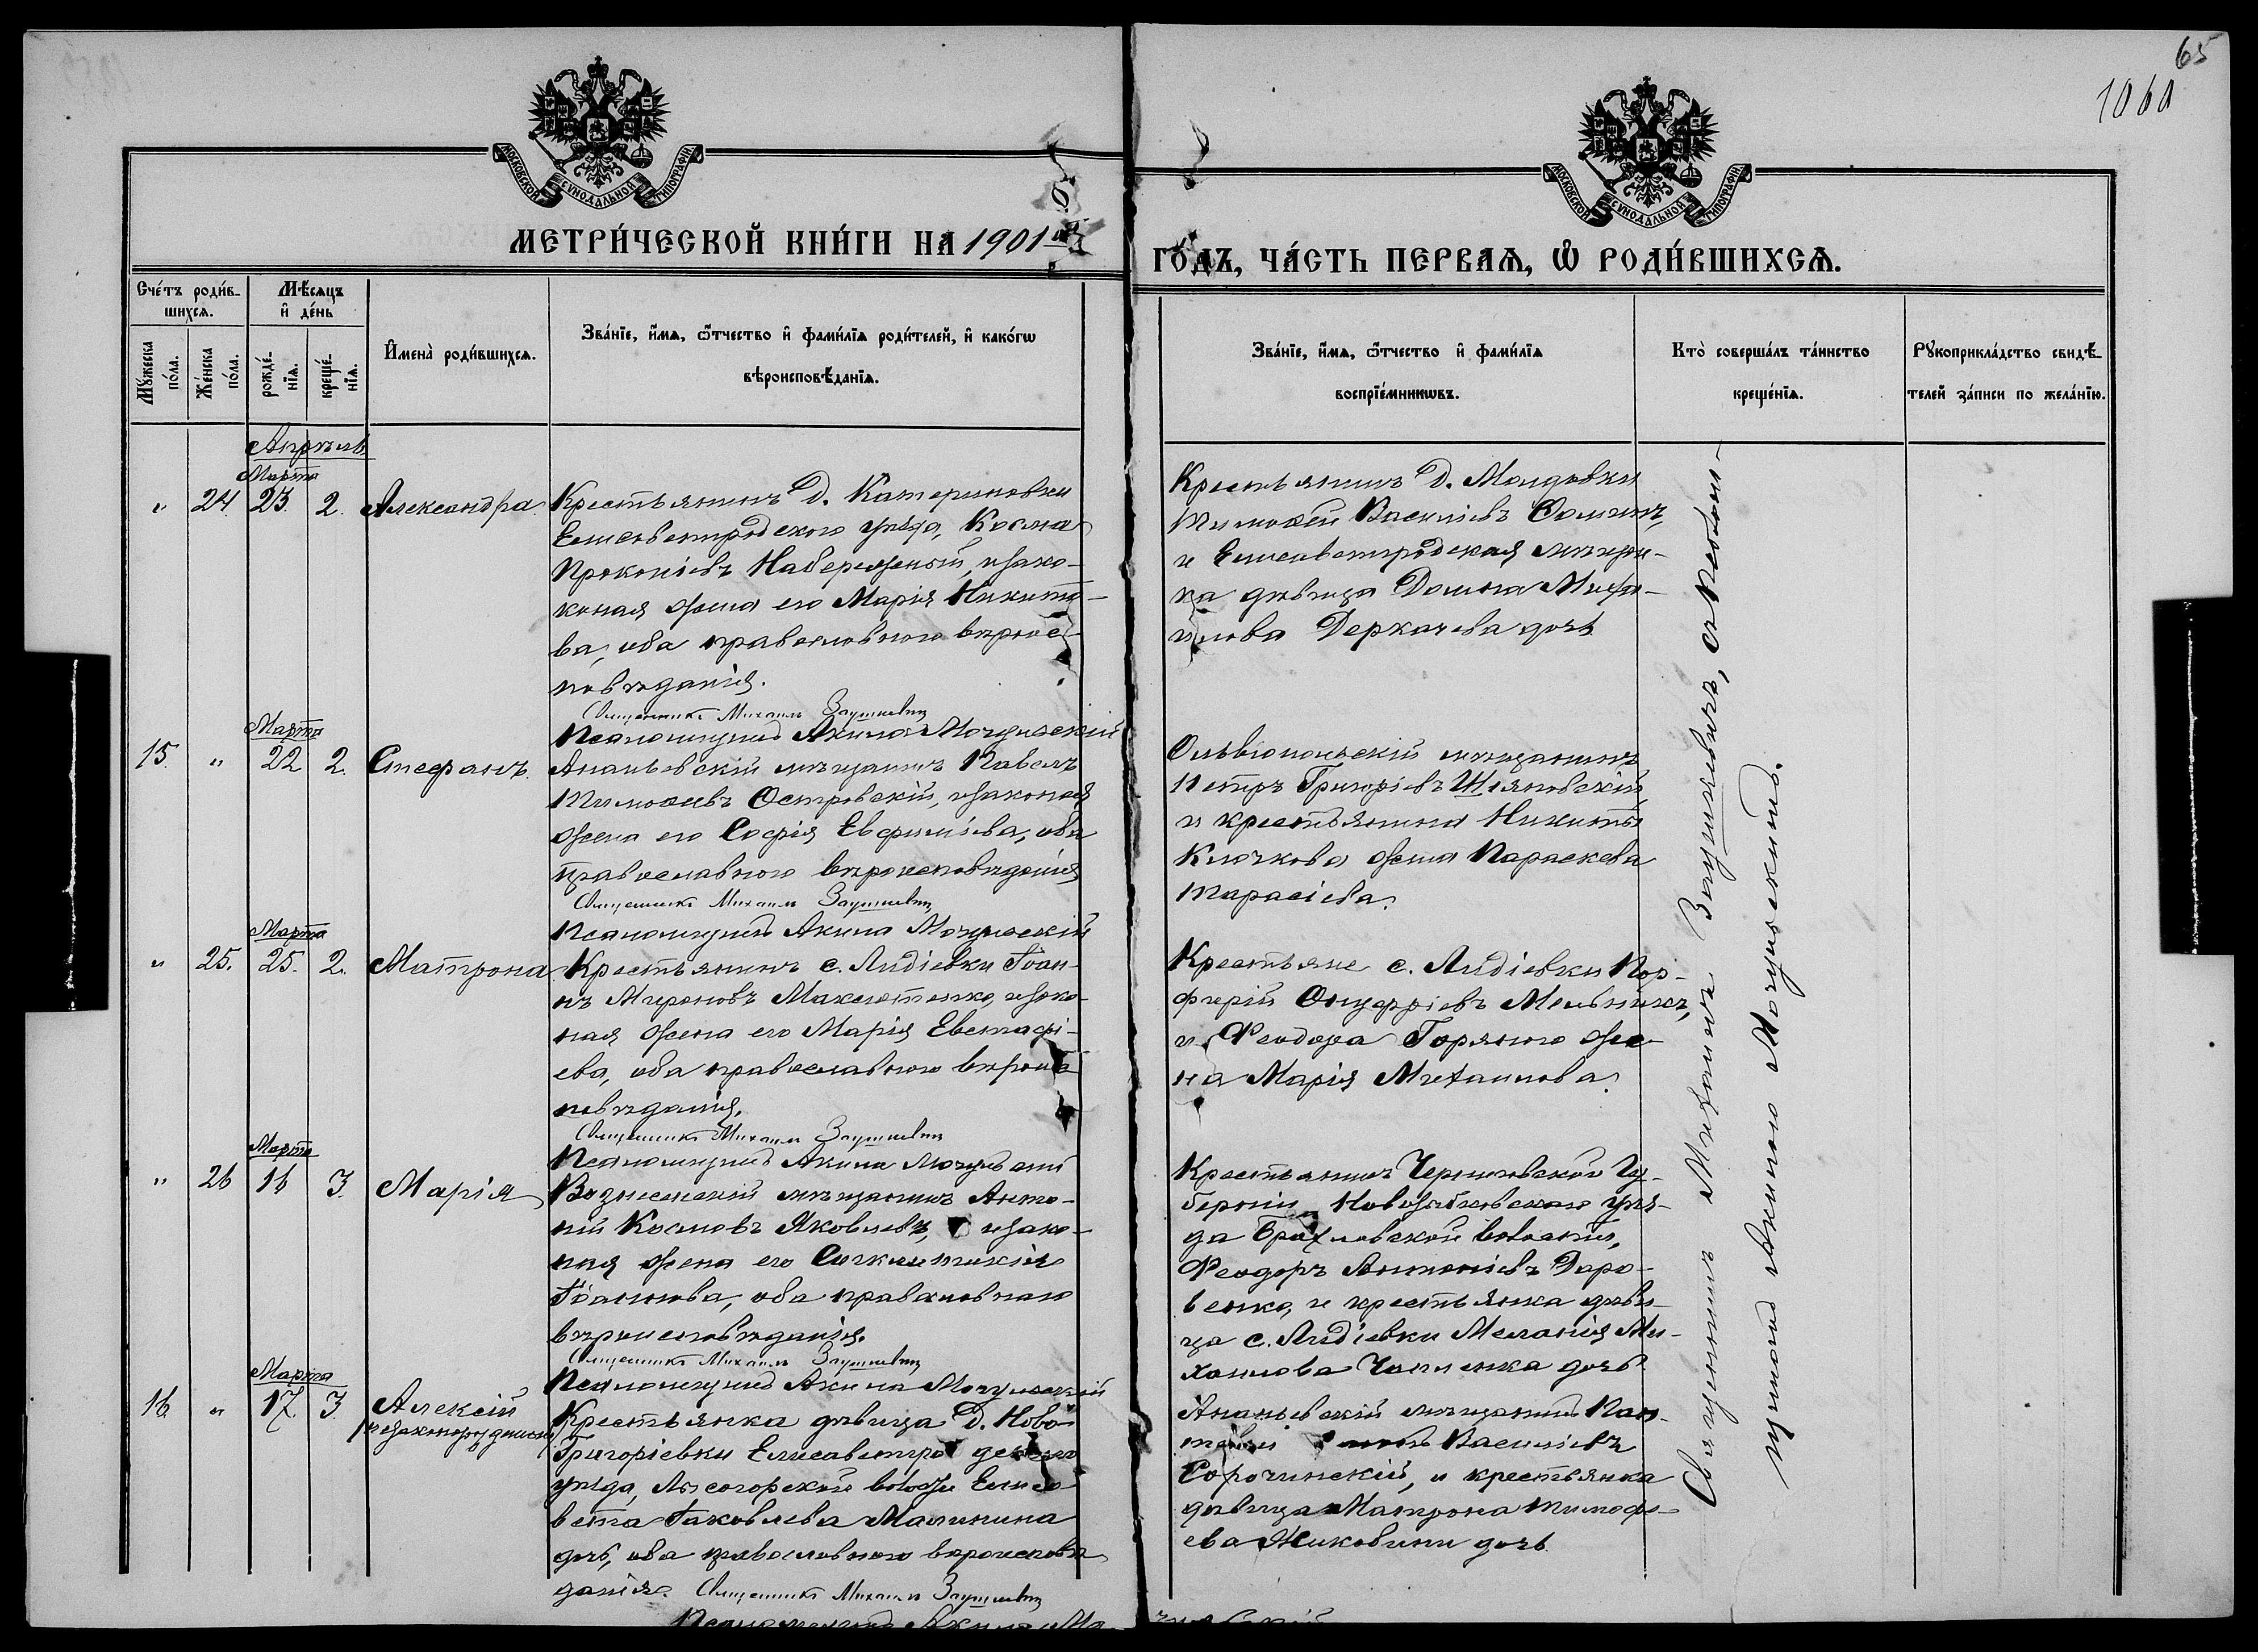 65
1060
МОСКОВСКОЙ СѴНОДАЛЬНОЙ ТИПОГРАФІИ
МОСКОВСКОЙ СѴНОДАЛЬНОЙ ТИПОГРАФІИ
МЕТРИ́ЧЕСКОЙ КНИ́ГИ НА 1901
ГО́ДЪ, ЧА́СТЬ ПЕРВАѦ, Ѡ РОДИ́ВШИХСѦ.
Сче́тъ роди́в-
шихсѧ.
Мꙋ́жеска
по́ла.
Же́нска
по́ла.
Мѣ́сяцъ
и҆ де́нь
рожде́-
нїѧ.
креще́-
нїѧ.
И҆мена̀ роди́вшихсѧ.
Зва́нїе, и҆́мѧ, ѻ҆́тчество и҆ фами́лїѧ роди́телей, и҆ како́гѡ
вѣроисповѣ́данїѧ.
Зва́нїе, и҆́мѧ, ѻ҆́тчество и҆ фами́лїѧ
воспрїе́мникѡвъ.
Кто̀ соверша́лъ та́инство
креще́нїѧ.
Рꙋкоприкла́дство свидѣ́-
телей за́писи по жела́нїю.
Апрѣль
Марта
" 24. 23. 2. Александра.
Крестьянинъ д. Катериновки
Елисаветградскаго уѣзда, Косма
Прокопіевъ Набережный, изако-
ная жена его Марія Никито-
ва, оба православнаго вѣроис-
повѣданія.
Священникъ Михаилъ Заушкевичъ
Псаломщикъ Акила Мочульскій
Крестьянинъ д.
Тимоѳей Васильевъ
и Елисаветградская мѣщан-
ка дѣвица Домна Миха-
илова Деркачева дочь
Марта
15. " 22 2. Стефанъ.
Ананьевскій мѣщанинъ Павелъ
Тимоѳеевъ Островскій, изаконая
жена его Софія Евфиміева, оба
православнаго вѣроисповѣданія
Священникъ Михаилъ Заушкевичъ
Псаломщикъ Акила Мочульскій
Ольвіопольскій мѣщанинъ
Петръ Григоріевъ Шляховскій,
и крестьянина Никиты
Клочкова жена Параскева
Тарасіева.
Марта
" 25. 25. 2. Матрона
Крестьянинъ с. Лидіевки Іоан-
нъ Мироновъ изако-
ная жена его Марія Евстафі-
ева, оба православнаго вѣроис-
повѣданія.
Священникъ Михаилъ Заушкевичъ
Псаломщикъ Акила Мочульскій
Крестьяне с. Лидіевки Пор-
фирій Онуфріевъ Мельникъ,
и Ѳеодора Горяного же-
на Марія Михаилова.
Марта
" 26 16 3. Марія
Вознесенскій мѣщанинъ Анто-
ній Космовъ Яковлевъ, изако-
ная жена его Синклитикія
Іоаннова, оба православнаго
вѣроисповѣданія.
Священникъ Михаилъ Заушкевичъ
Псаломщикъ Акила Мочульскій
Крестьянинъ Черниговской Гу-
берніи Новозыбковскаго уѣз-
да Брахловской волости,
Ѳеодоръ Антоніевъ Даро-
венко, и крестьянка дѣви-
ца с. Лидіевки Меланія Ми-
хаилова дочь
Марта
16. " 17. 3. Алексій
(незаконорожденный)
Крестьянка дѣвица д. Ново-
Григоріевки Елисаветградскаго
уѣзда, Лысогорской волости Елиса-
вета Іаковлева Малинина
дочь, оба православнаго вѣроисповѣ-
данія. Священникъ Михаилъ Заушкевичъ
Псаломщикъ Акила Мочульскій
Ананьевскій мѣщанинъ
Васильевъ
Сорочинскій, и крестьянка
дѣвица Матрона Тимоѳе-
ева дочь
Священникъ Михаилъ Заушкевичъ, съ псалом-
щикомъ Акилою Мочульскимъ.